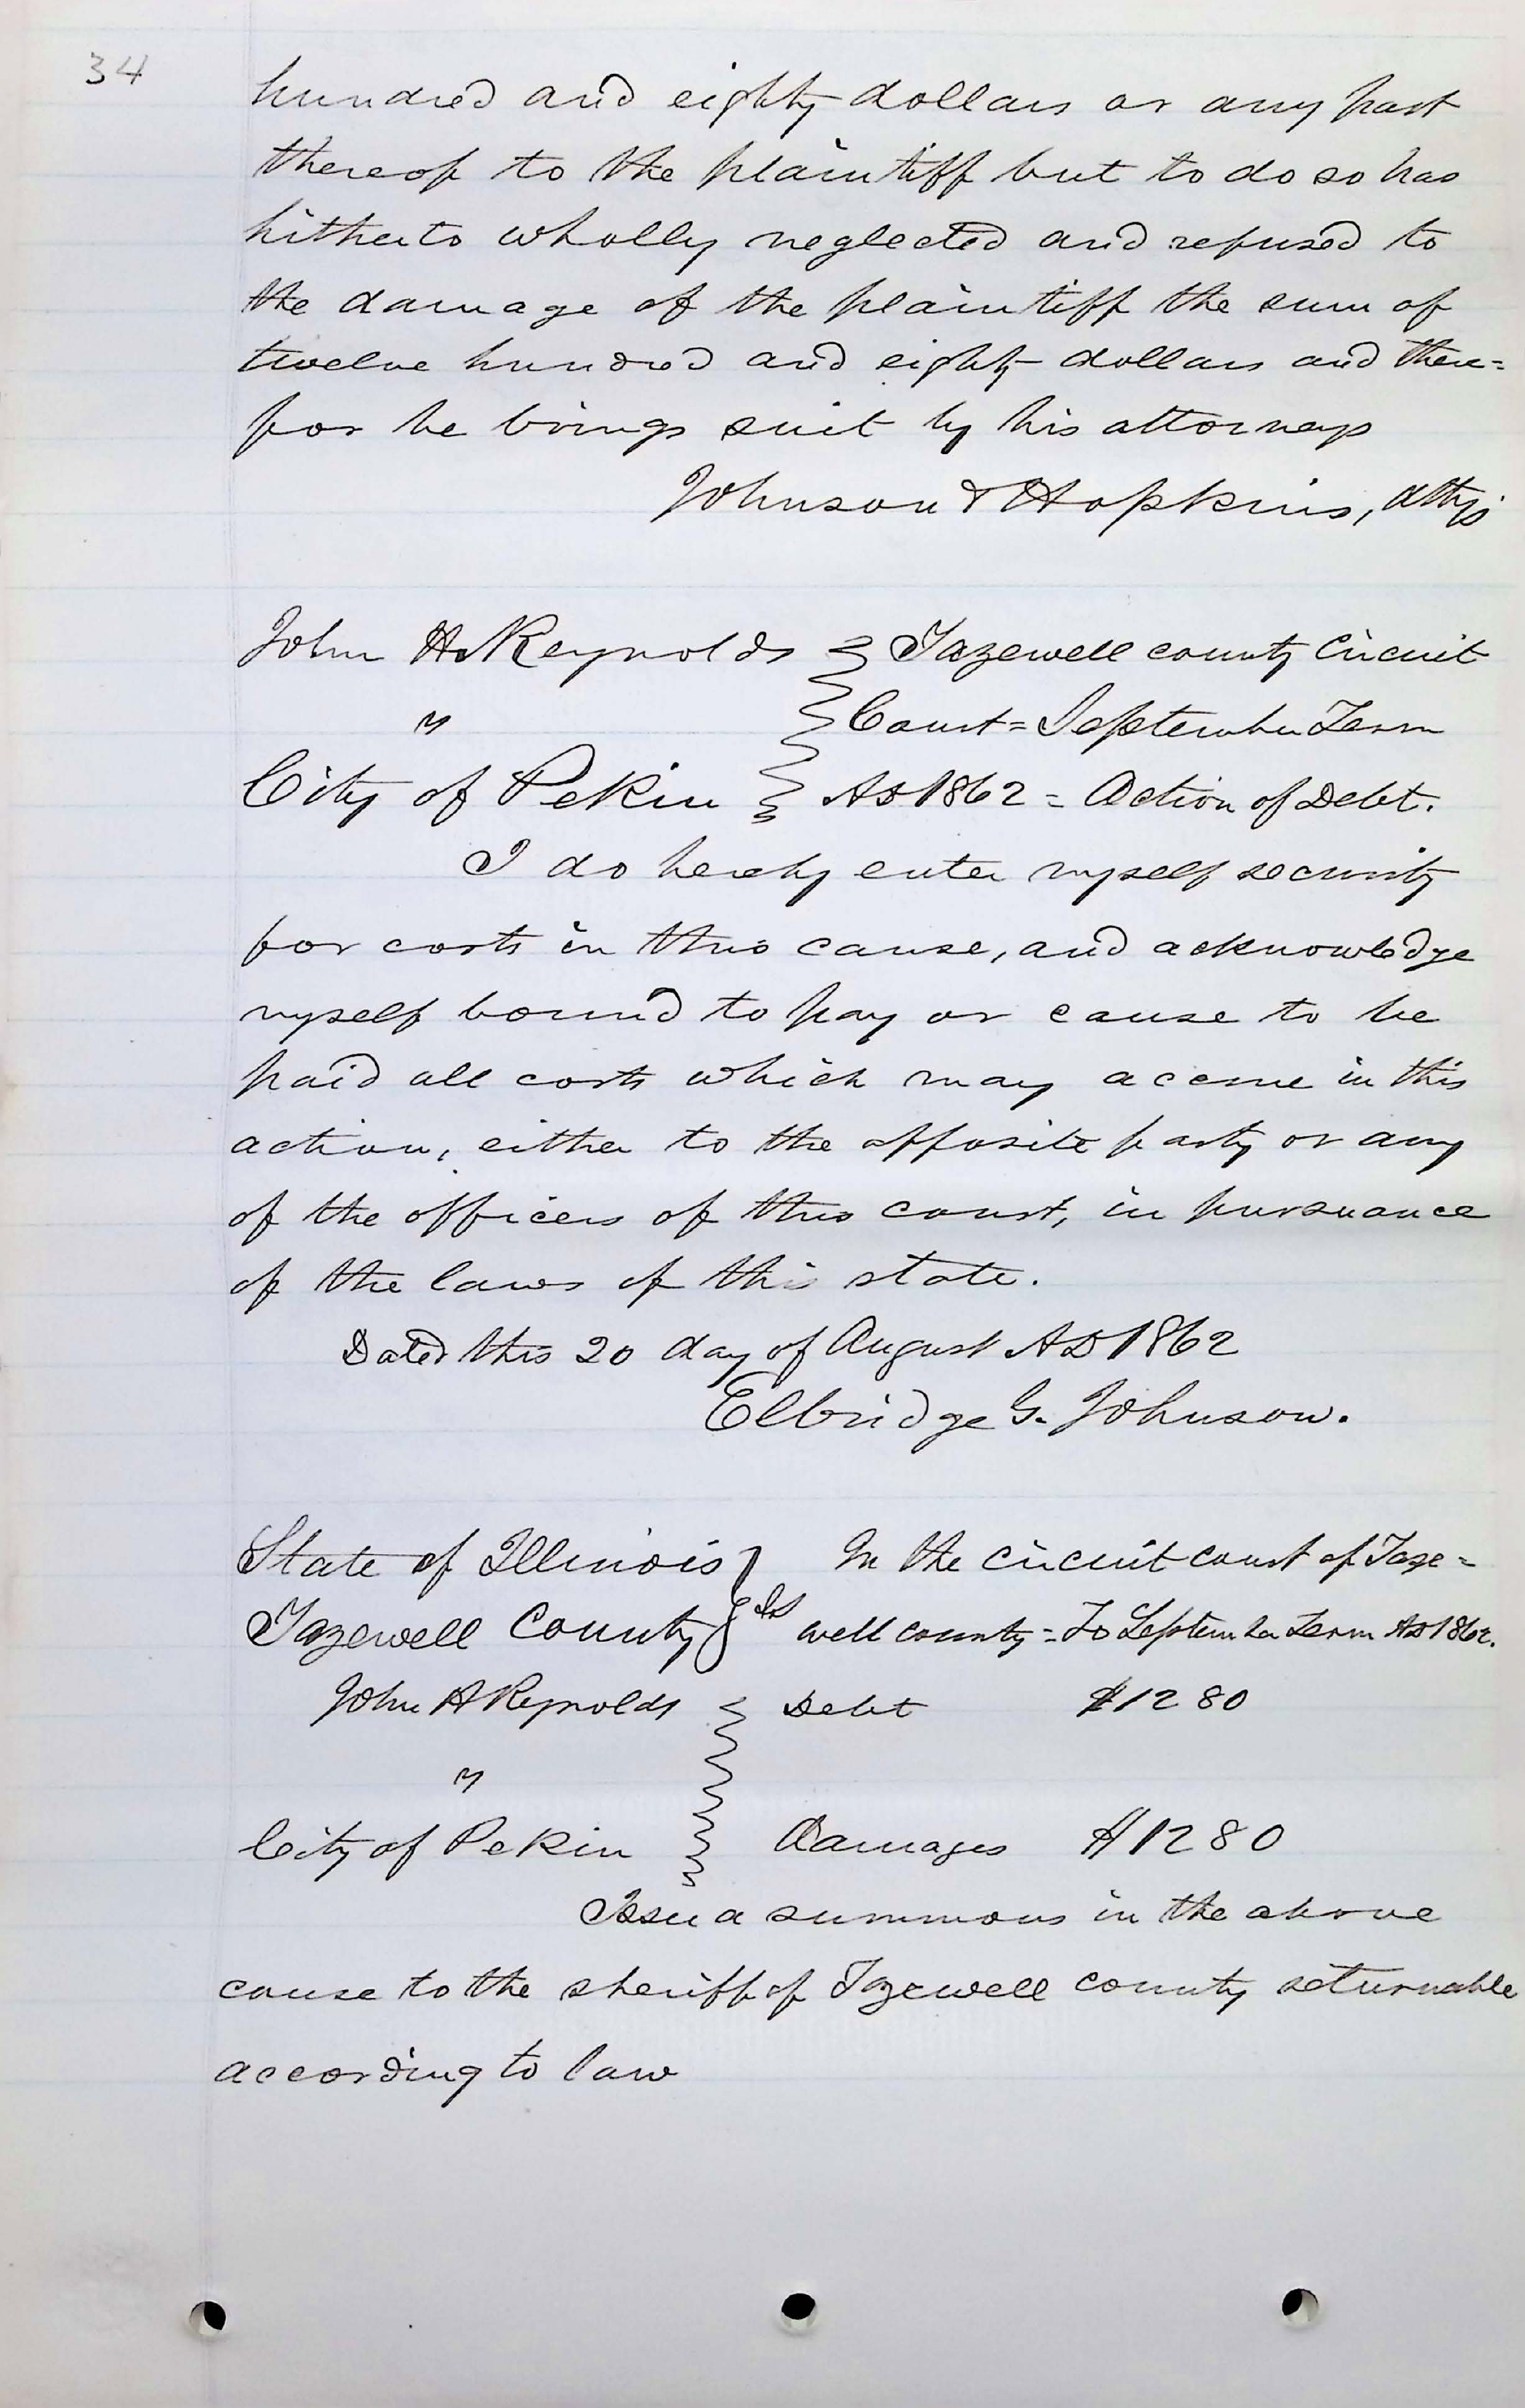 34
hundred and eighty dollars or any part
thereof to the plaintiff but to do so has
hitherto wholly neglected and refused to
the damage of the plaintiff the sum of
twelve hundred and eighty dollars and there=
for he brings suit by his attorneys
Johnson & Hopkins, attys
John H. Reynolds } Tazewell county Circuit
vs } Court = September Term
City of Pekin } AD 1862 = Action of Debt.
I do hereby enter myself security
for costs in this cause, and acknowledge
myself bound to pay or cause to be
paid all costs which may accrue in this
action, either to the opposite party or any
of the officers of this court, in pursuance
of the laws of this state.
Dated this 20 day of August AD 1862
Elbridge G. Johnson.
State of Illinois } In the circuit court of Taze=
Tazewell County } ss well county = To September Term AD 1862.
John H Reynolds } Debt $1280
vs
City of Pekin } Damages $1280
Issue a summons in the above
cause to the sheriff of Tazewell county returnable
according to law